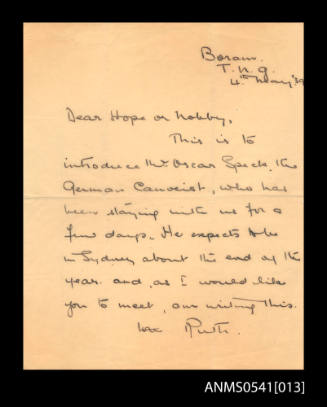 Boram.
T.N.G.
4th May '39
Dear Hope or Nobby,
This is to
introduce Mr Oscar Speck, the
German Canoeist, who has
been staying with us for a
few days. He expects to be
in Sydney about the end of the
year. and, as I would like
you to meet, am writing this.
Ruth.
ANMS0541[013]